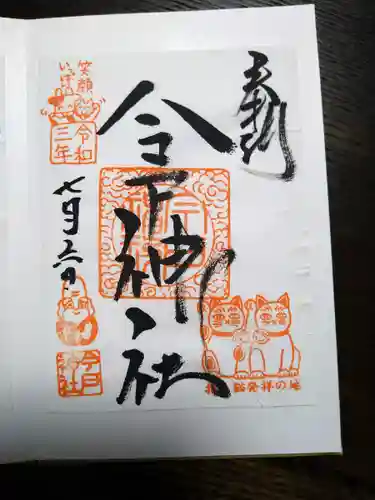 奉拝
今戸神社
笑顔
いっぱい
令和
三年
七月六日
今戸
神社
招き猫発祥の地